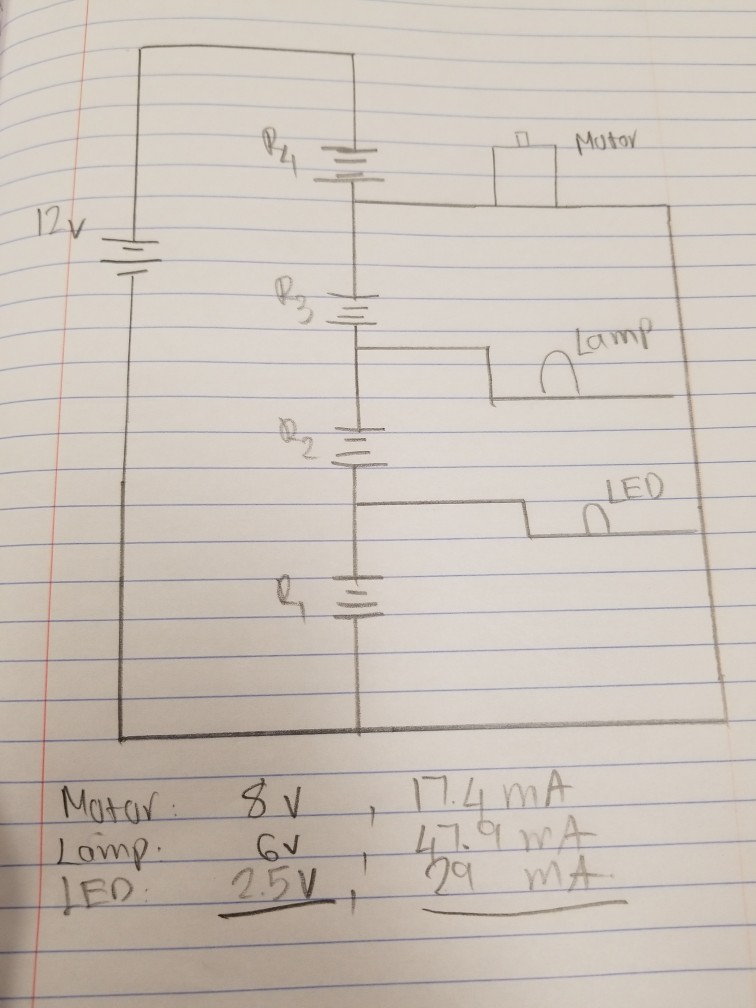 R4
Motor
12v
R3
Lamp
R2
LED
R1
Motor: 8 V, 17.4 mA
Lamp: 6v, 47.9 mA
LED: 2.5V, 29 mA.